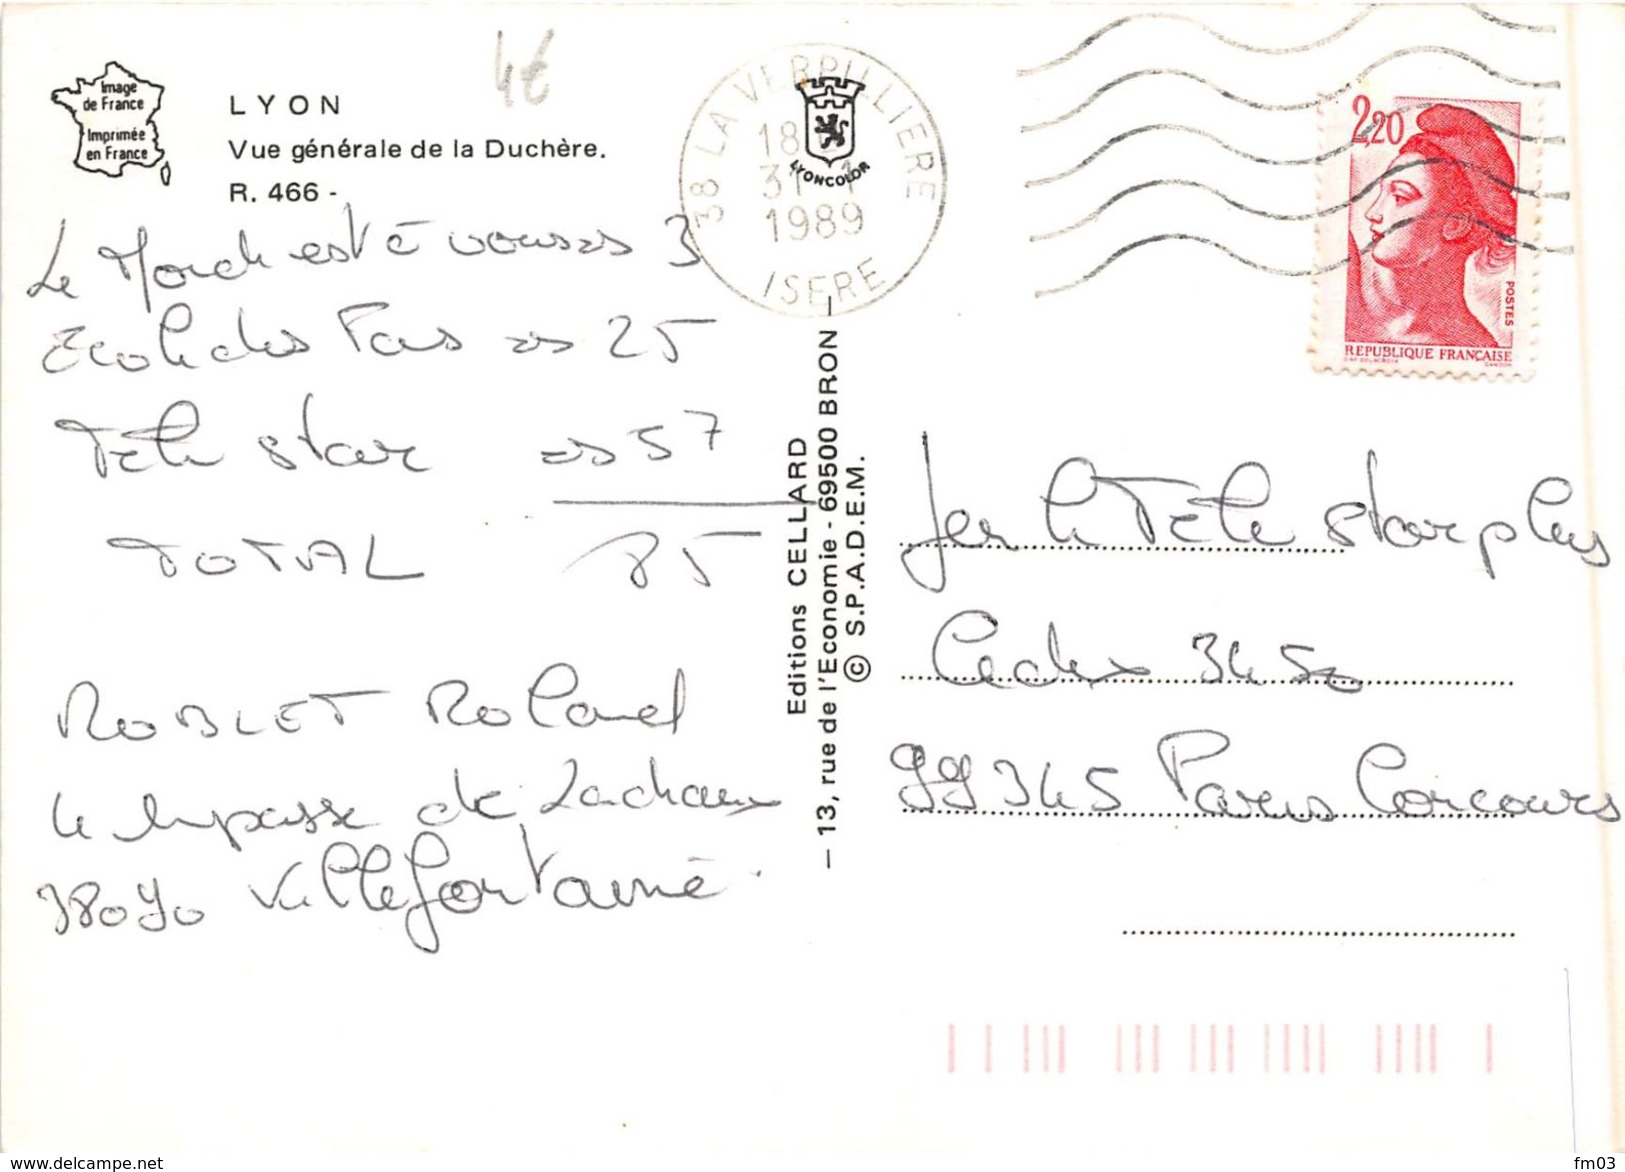 Image
de France
Imprimée
en France
LYON
Vue générale de la Duchère.
R. 466 -
4€
38 LA VERPILLIERE
18
31 - 1
1989
ISERE
LYONCOLOR
2,20
POSTES
REPUBLIQUE FRANÇAISE
GANDON
Le Monde est à vous => 3
Ecole des Fans => 25
Télé Star => 57
TOTAL 85
ROBLET Roland
4 Impasse de
38090 Villefontaine
Editions CELLARD
— 13, rue de l'Economie - 69500 BRON —
© S.P.A.D.E.M.
Jeu le Télé Star plus
Cedex 3450
99345 Paris Concours
delcampe.net
fm03